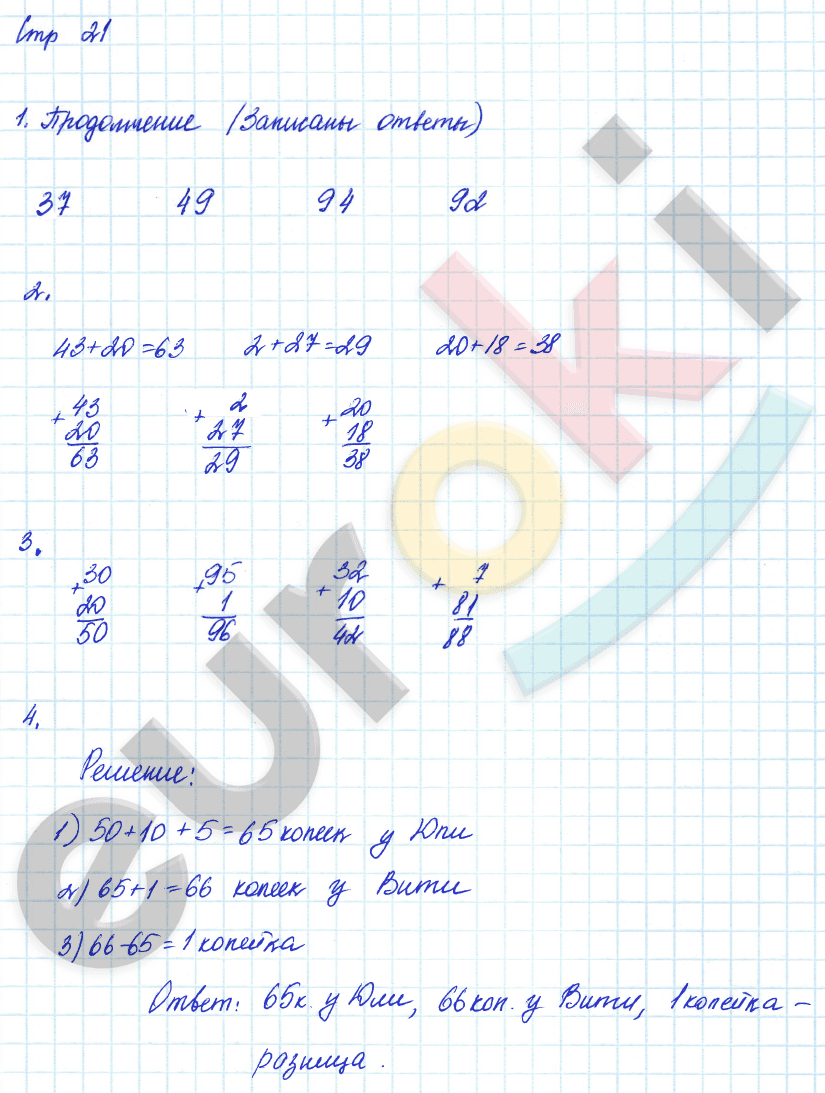 Стр 21
1. Продолжение (Записаны ответы)
37 49 94 92
2.
43+20=63 2+27=29 20+18=38
+ 43 + 2 + 20
20 27 18
63 29 38
3.
+ 30 + 95 + 32 + 7
20 1 10 81
50 96 42 88
4.
Решение:
1) 50+10+5=65 копеек у Юли
2) 65+1=66 копеек у Вити
3) 66-65=1 копейка
Ответ: 65к. у Юли, 66 коп. у Вити, 1 копейка –
разница.
euroki